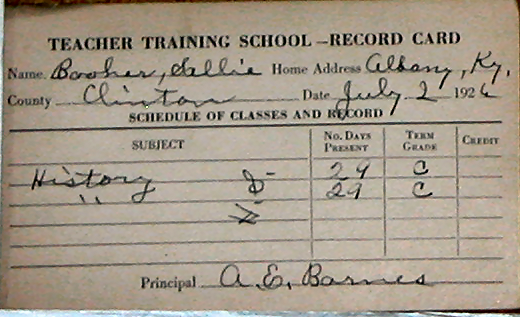 TEACHER TRAINING SCHOOL – RECORD CARD
Name Booher, Sallie Home Address Albany, Ky,
County Clinton Date July 2 1926
SCHEDULE OF CLASSES AND RECORD
SUBJECT No. Days Present Term Grade Credit
History 29 C
" 29 C
Principal A. E. Barnes